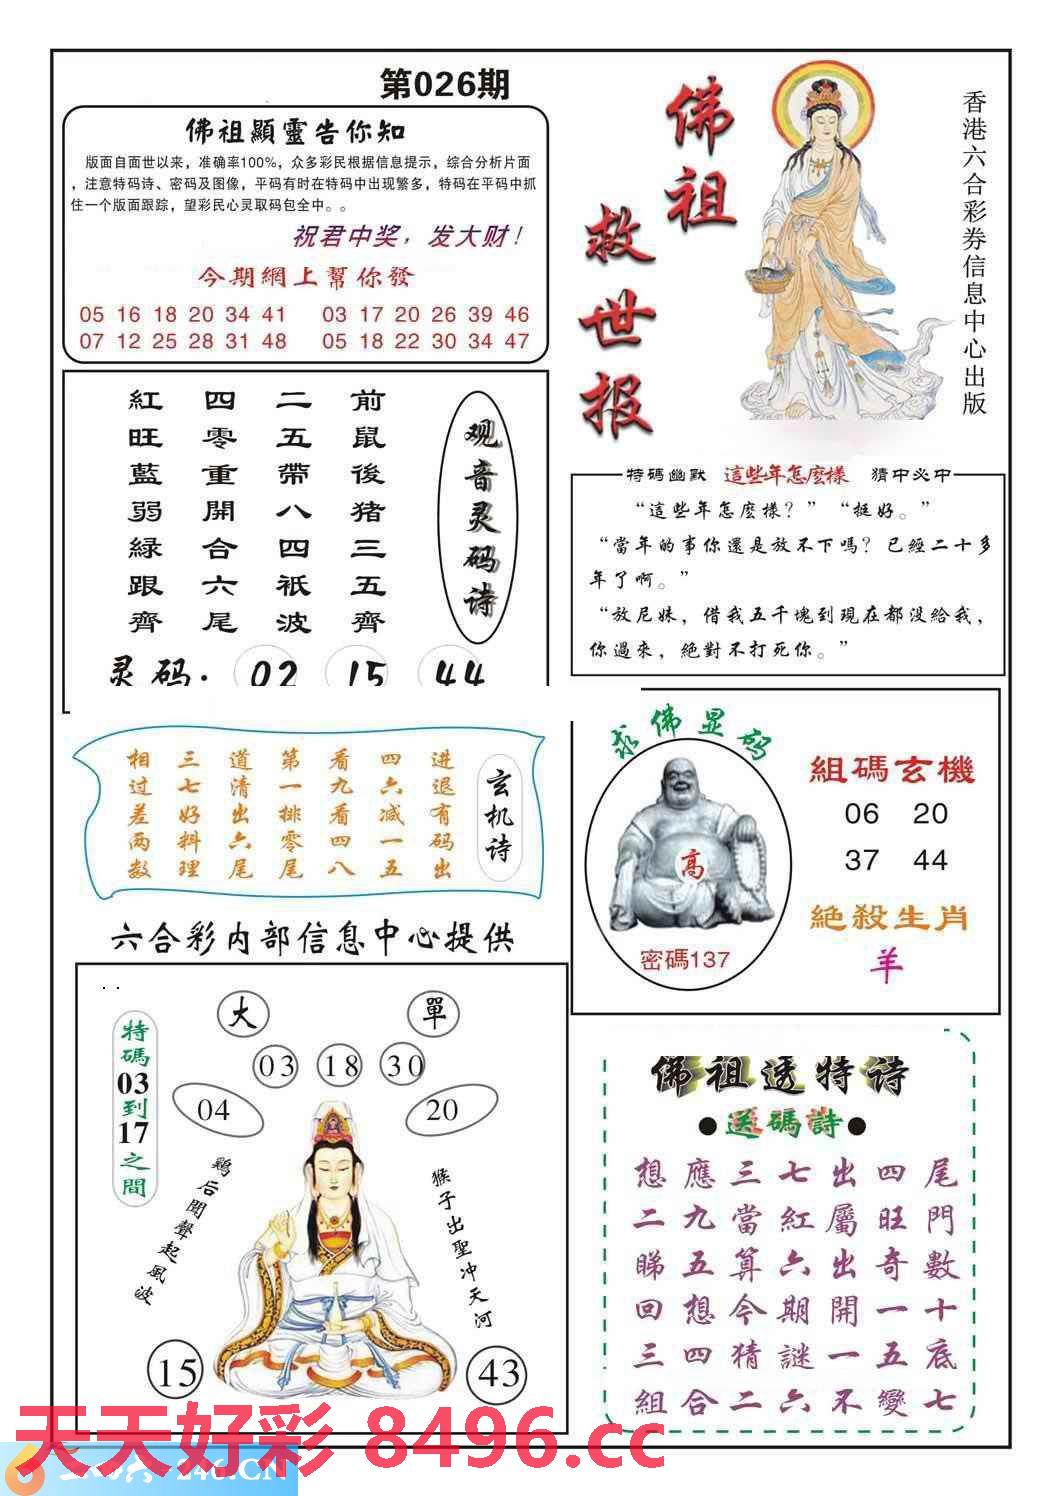 第026期
佛祖顯靈告你知
版面自面世以来，准确率100%，众多彩民根据信息提示，综合分析片面
，注意特码诗、密码及图像，平码有时在特码中出现繁多，特码在平码中抓
住一个版面跟踪，望彩民心灵取码包全中。。
祝君中奖，发大财！
今期網上幫你發
05 16 18 20 34 41 03 17 20 26 39 46
07 12 25 28 31 48 05 18 22 30 34 47
佛祖
救世报
香港六合彩券信息中心出版
观音灵码诗
前鼠後猪三五齊
二五帶八四祇波
四零重開合六尾
紅旺藍弱緑跟齊
灵码. 02 15 44
特碼幽默 這些年怎麽樣 猜中必中
“這些年怎麽樣？”“挺好。”
“當年的事你還是放不下嗎？已經二十多
年了啊。”
“放尼妹，借我五千塊到現在都没給我，
你過來，絶對不打死你。”
玄机诗
进退有码出
四六减一五
看九看四八
第一排零尾
道清出六尾
三七好料理
相过差两数
求佛显码
高
密碼137
組碼玄機
06 20
37 44
絶殺生肖
羊
六合彩内部信息中心提供
大 單
03 18 30
04 20
特碼03到17之間
鷄后聞聲起風波
猴子出聖冲天河
15 43
佛祖透特诗
●送碼詩●
想應三七出四尾
二九當紅屬旺門
睇五算六出奇數
回想今期開一十
三四猜謎一五底
組合二六不變七
天天好彩 8496.cc
246.CN